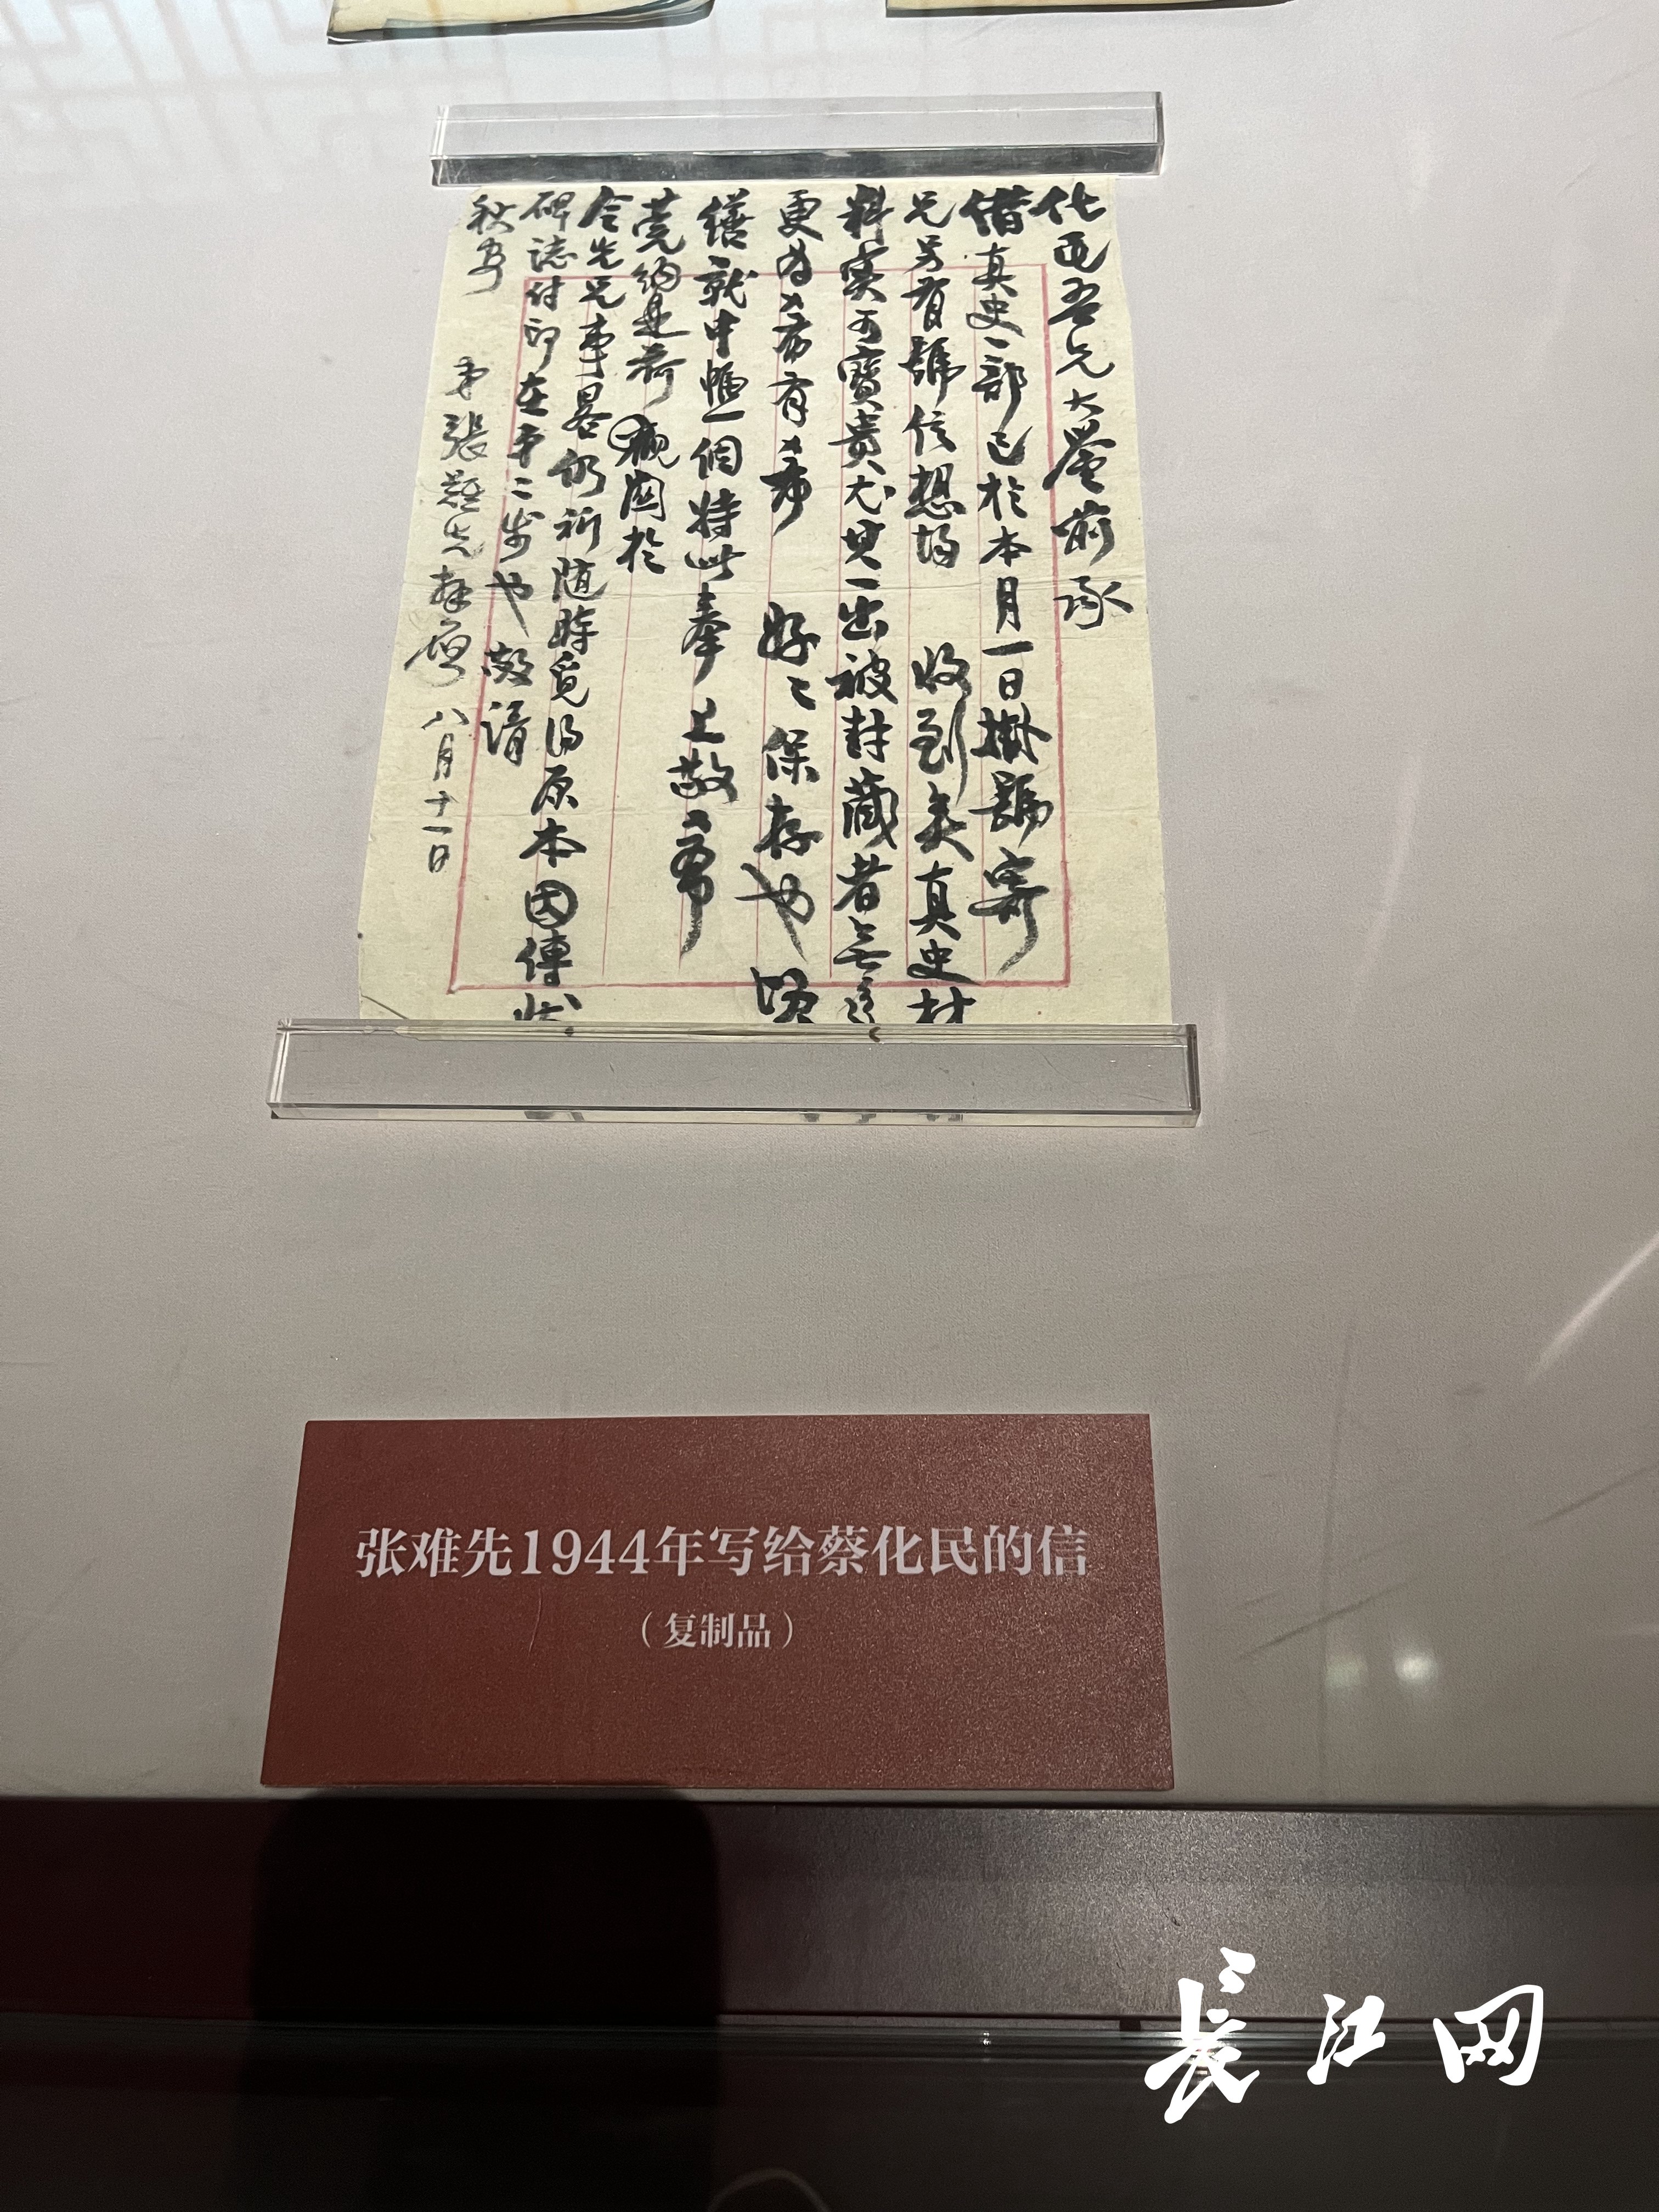 化民吾兄大鑒前承
借真史一部已於本月一日掛號寄
兄另有號信想均 收到矣真史材
料實可寶貴尤其一出被封藏者無
更為希有希 好好保存也
繕就中幅一個特此奉上敬希
莞納是荷 於
令先兄事畧仍祈隨時覓得原本因傳狀
碑誌付印在第二步也敬請
秋安
弟張難先拜啓 八月十一日
张难先1944年写给蔡化民的信
（复制品）
長江网